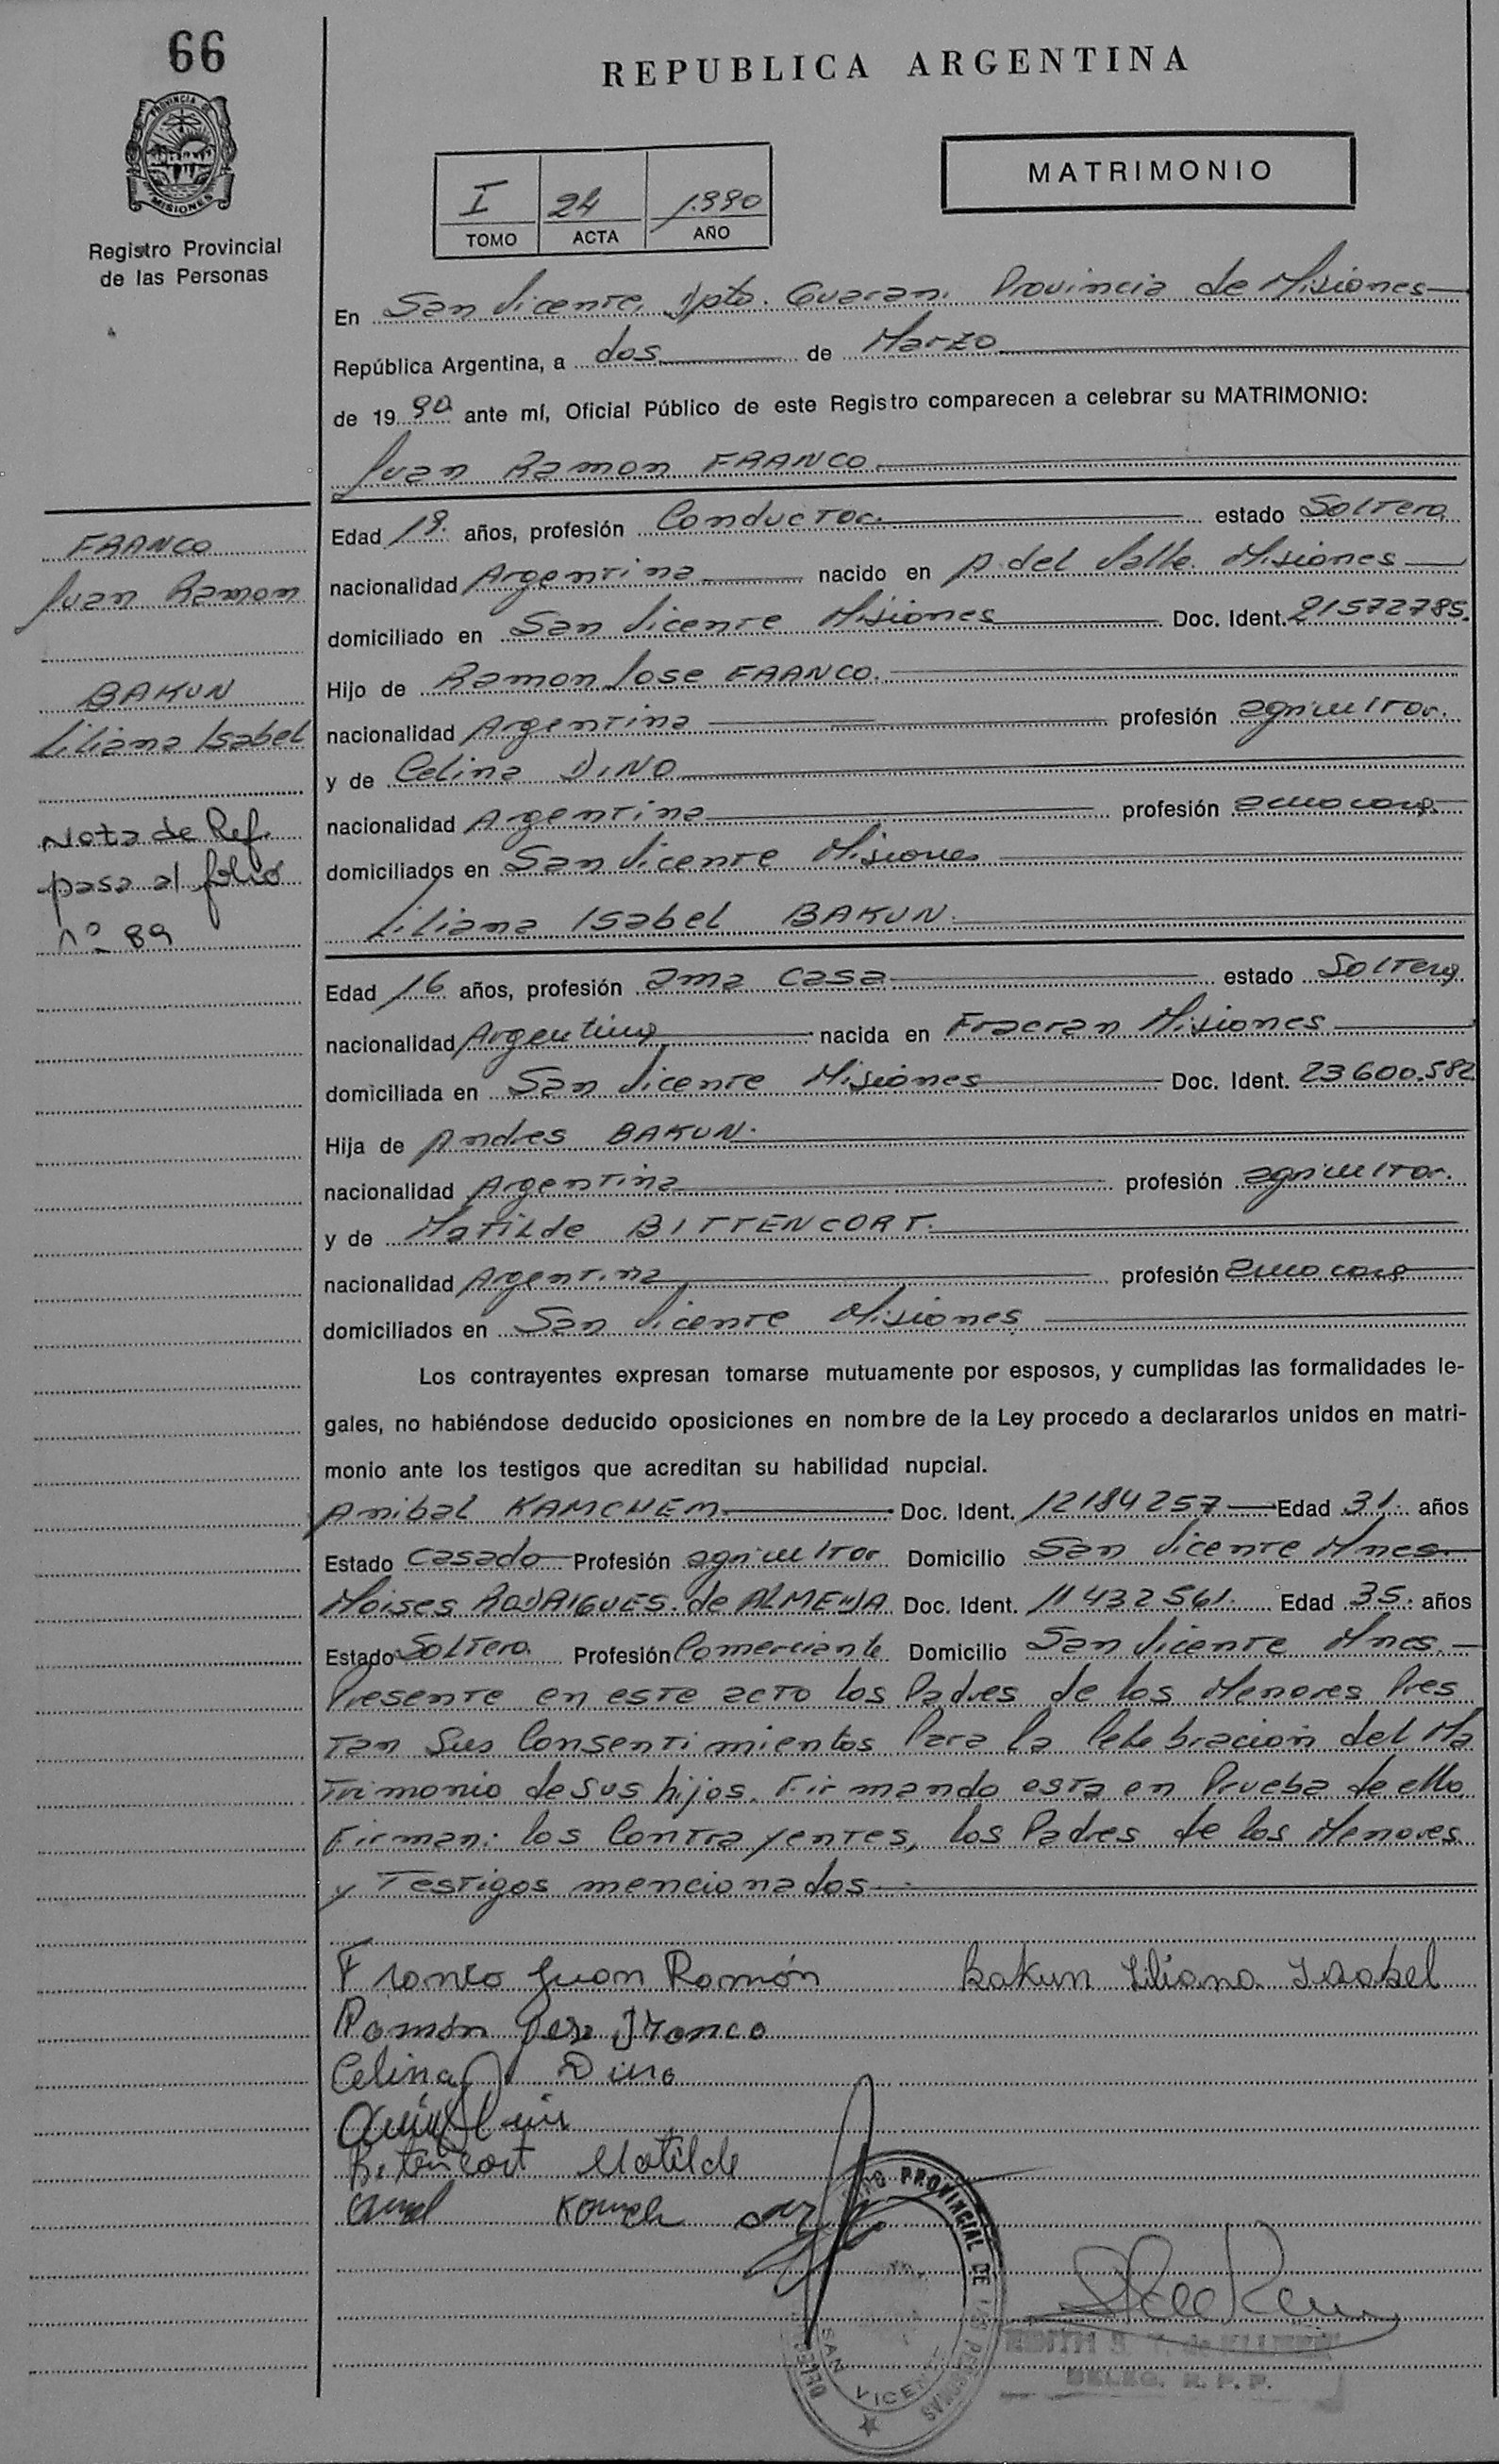 66
REPUBLICA ARGENTINA
PROVINCIA DE
MISIONES
Registro Provincial
de las Personas
I 24 1.990
TOMO ACTA AÑO
MATRIMONIO
En San Vicente, Dpto. Guarani. Provincia de Misiones
República Argentina, a dos de Marzo
de 19 90 ante mí, Oficial Público de este Registro comparecen a celebrar su MATRIMONIO:
Juan Ramon FRANCO
FRANCO
Juan Ramon
BAKUN
Liliana Isabel
Nota de Ref.
pasa al folio
nº 89
Edad 19. años, profesión Conductor. estado Soltero
nacionalidad Argentina nacido en A. del Valle Misiones
domiciliado en San Vicente Misiones Doc. Ident. 21572785.
Hijo de Ramon Jose FRANCO.
nacionalidad Argentina profesión agricultor.
y de Celina DINO
nacionalidad Argentina profesión ama casa.
domiciliados en San Vicente Misiones
Liliana Isabel BAKUN.
Edad 16 años, profesión ama casa estado Soltera
nacionalidad Argentina nacida en Fracran Misiones
domiciliada en San Vicente Misiones Doc. Ident. 23600.582
Hija de Andres BAKUN.
nacionalidad Argentina profesión agricultor.
y de Matilde BITTENCORT.
nacionalidad Argentina profesión ama casa
domiciliados en San Vicente Misiones
Los contrayentes expresan tomarse mutuamente por esposos, y cumplidas las formalidades le-
gales, no habiéndose deducido oposiciones en nombre de la Ley procedo a declararlos unidos en matri-
monio ante los testigos que acreditan su habilidad nupcial.
Anibal KAMCHEM Doc. Ident. 12184257 Edad 31. años
Estado Casado Profesión agricultor Domicilio San Vicente Mnes
Moises RODRIGUES. de ALMEIDA Doc. Ident. 11432561. Edad 35. años
Estado Soltero. Profesión Comerciante Domicilio San Vicente Mnes.
Presente en este acto los Padres de los Menores Pres
tan Sus Consentimientos Para la Celebracion del Ma
trimonio de sus hijos. Firmando esta en Prueba de ello.
Firman: los Contrayentes, los Padres de los Menores
y Testigos mencionados
Franco Juan Ramón Bakun Liliana Isabel
Ramón Jose Franco
Celina Dino
Betencort Matilde
PROVINCIAL DE LAS PERSONAS
SAN VICENTE
DELEG. R. P. P.